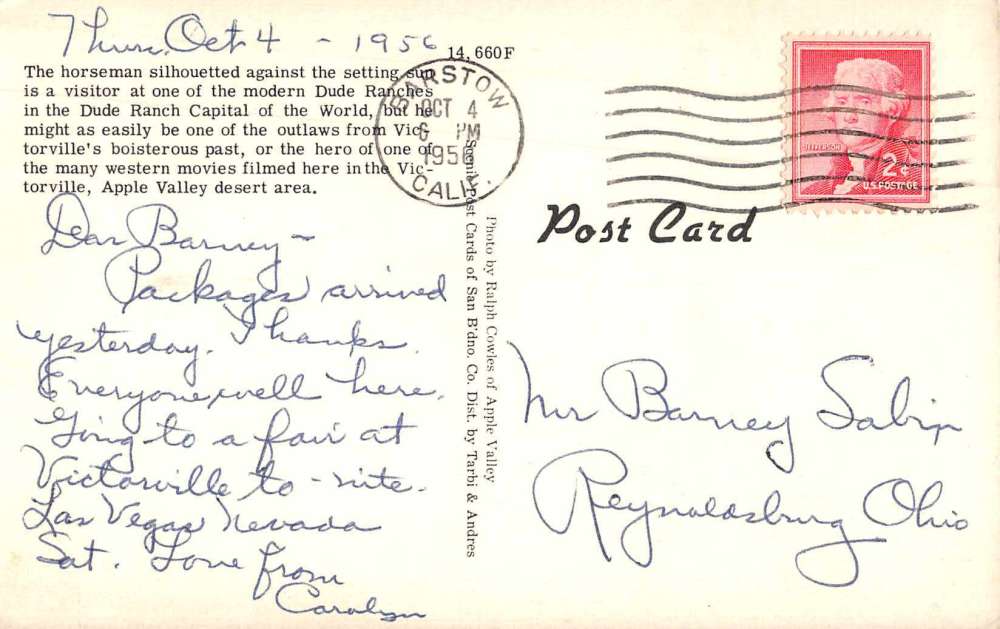 Thurs. Oct 4 - 1956
14,660F
The horseman silhouetted against the setting sun
is a visitor at one of the modern Dude Ranches
in the Dude Ranch Capital of the World, but he
might as easily be one of the outlaws from Vic-
torville's boisterous past, or the hero of one of
the many western movies filmed here in the Vic-
torville, Apple Valley desert area.
Dear Barney -
Packages arrived
yesterday. Thanks.
Everyone well here.
Going to a fair at
Victorville to-nite.
Las Vegas Nevada
Sat. Love from
Carolyn
Scenic Post Cards of San B'dno. Co. Dist. by Tarbi & Andres
Photo by Ralph Cowles of Apple Valley
BARSTOW
OCT 4
6 PM
1956
CALIF.
JEFFERSON
2¢
U.S. POSTAGE
Post Card
Mr Barney Sabin
Reynoldsburg Ohio